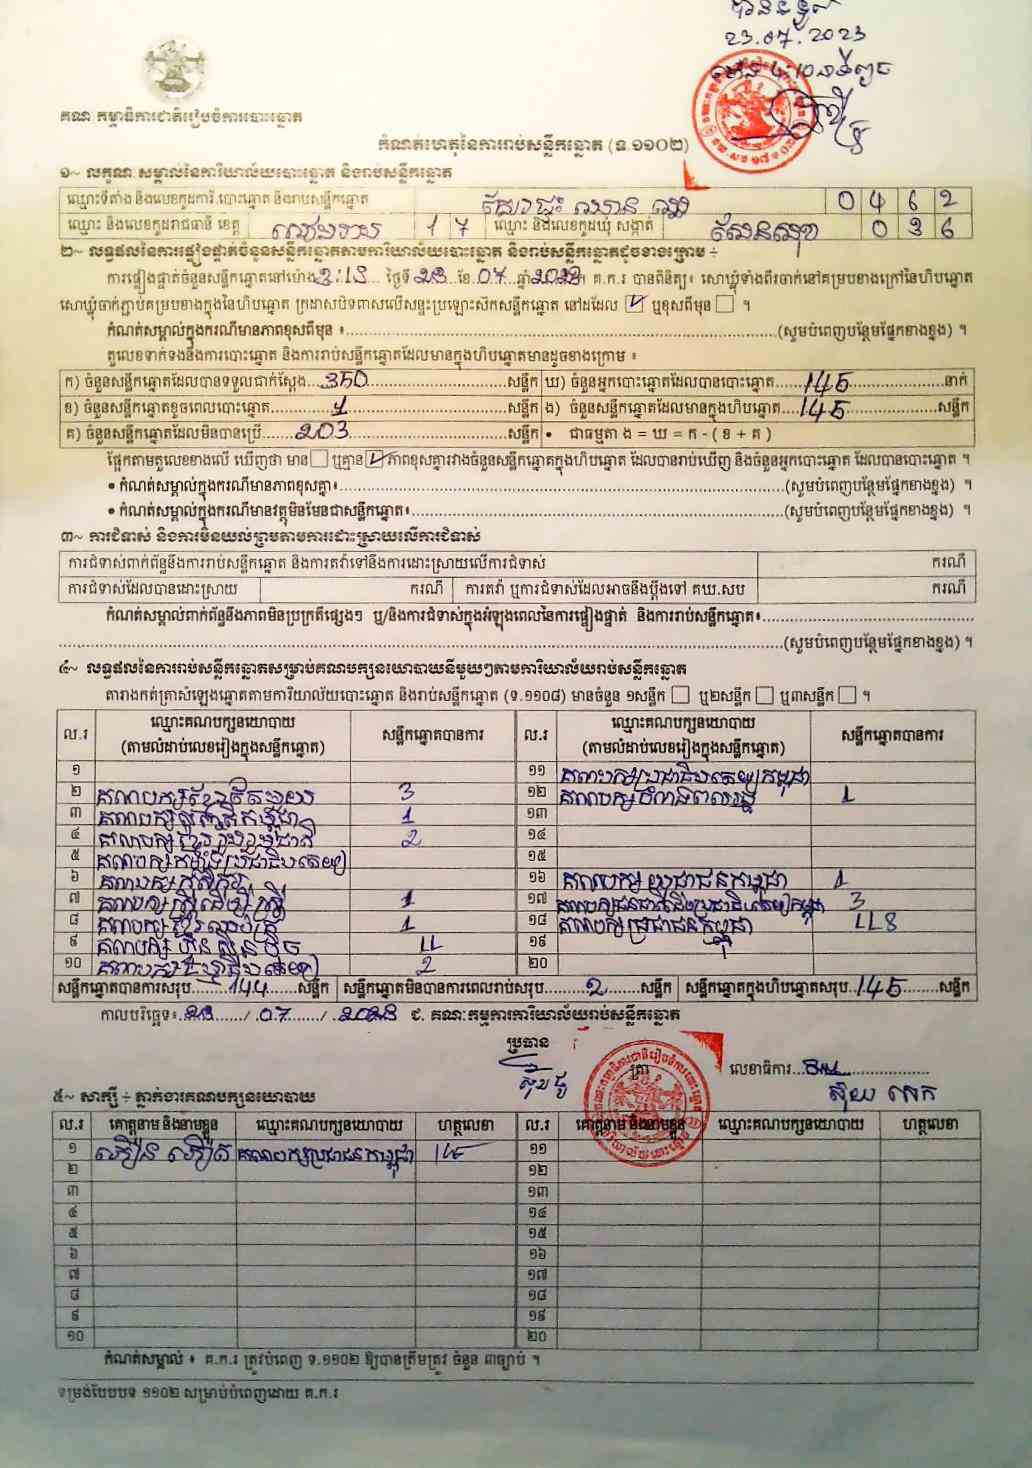 23.07.2023
គណៈកម្មាធិការជាតិរៀបចំការបោះឆ្នោត
កំណត់ហេតុនៃការរាប់សន្លឹកឆ្នោត (ទ.១១០២)
១~ លក្ខណៈសម្គាល់នៃការិយាល័យបោះឆ្នោត និងរាប់សន្លឹកឆ្នោត
ឈ្មោះទីតាំង និងលេខកូដការិ.បោះឆ្នោត និងរាប់សន្លឹកឆ្នោត 0 4 6 2
ឈ្មោះ និងលេខកូដរាជធានី ខេត្ត សៀមរាប 1 7 ឈ្មោះ និងលេខកូដឃុំ សង្កាត់ សែនសុខ 0 3 6
២~ លទ្ធផលនៃការផ្ទៀងផ្ទាត់ចំនួនសន្លឹកឆ្នោតតាមការិយាល័យបោះឆ្នោត និងរាប់សន្លឹកឆ្នោតដូចខាងក្រោម ÷
ការផ្ទៀងផ្ទាត់ចំនួនសន្លឹកឆ្នោតនៅម៉ោង 3:15 ថ្ងៃទី 23 ខែ 07 ឆ្នាំ 2023 គ.ក.រ បានពិនិត្យ៖ សោឃ្លុំទាំងពីរចាក់នៅគម្របខាងក្រៅនៃហិបឆ្នោត
សោឃ្លុំចាក់ភ្ជាប់គម្របខាងក្នុងនៃហិបឆ្នោត ក្រដាសបិទពាសលើសន្ទះប្រឡោះស៊កសន្លឹកឆ្នោត នៅដដែល ☑ ឬខុសពីមុន ☐ ។
កំណត់សម្គាល់ក្នុងករណីមានភាពខុសពីមុន ៖ (សូមបំពេញបន្ថែមផ្នែកខាងខ្នង) ។
តួលេខទាក់ទងនឹងការបោះឆ្នោត និងការរាប់សន្លឹកឆ្នោតដែលមានក្នុងហិបឆ្នោតមានដូចខាងក្រោម ៖
ក) ចំនួនសន្លឹកឆ្នោតដែលបានទទួលជាក់ស្តែង 350 សន្លឹក ឃ) ចំនួនអ្នកបោះឆ្នោតដែលបានបោះឆ្នោត 146 នាក់
ខ) ចំនួនសន្លឹកឆ្នោតខូចពេលបោះឆ្នោត 1 សន្លឹក ង) ចំនួនសន្លឹកឆ្នោតដែលមានក្នុងហិបឆ្នោត 146 សន្លឹក
គ) ចំនួនសន្លឹកឆ្នោតដែលមិនបានប្រើ 203 សន្លឹក • ជាធម្មតា ង = ឃ = ក - ( ខ + គ )
ផ្អែកតាមតួលេខខាងលើ ឃើញថា មាន ☐ ឬគ្មាន ☑ ភាពខុសគ្នារវាងចំនួនសន្លឹកឆ្នោតក្នុងហិបឆ្នោត ដែលបានរាប់ឃើញ និងចំនួនអ្នកបោះឆ្នោត ដែលបានបោះឆ្នោត ។
• កំណត់សម្គាល់ក្នុងករណីមានភាពខុសគ្នា៖ (សូមបំពេញបន្ថែមផ្នែកខាងខ្នង) ។
• កំណត់សម្គាល់ក្នុងករណីមានវត្ថុមិនមែនជាសន្លឹកឆ្នោត៖ (សូមបំពេញបន្ថែមផ្នែកខាងខ្នង) ។
៣~ ការជំទាស់ និងការមិនយល់ព្រមតាមការដោះស្រាយលើការជំទាស់
ការជំទាស់ពាក់ព័ន្ធនឹងការរាប់សន្លឹកឆ្នោត និងការតវ៉ាទៅនឹងការដោះស្រាយលើការជំទាស់ ករណី
ការជំទាស់ដែលបានដោះស្រាយ ករណី ការតវ៉ា ឬការជំទាស់ដែលអាចនឹងប្តឹងទៅ គឃ.សប ករណី
កំណត់សម្គាល់ពាក់ព័ន្ធនឹងភាពមិនប្រក្រតីផ្សេងៗ ឬ/និងការជំទាស់ក្នុងអំឡុងពេលនៃការផ្ទៀងផ្ទាត់ និងការរាប់សន្លឹកឆ្នោត៖
(សូមបំពេញបន្ថែមផ្នែកខាងខ្នង) ។
៤~ លទ្ធផលនៃការរាប់សន្លឹកឆ្នោតសម្រាប់គណបក្សនយោបាយនីមួយៗតាមការិយាល័យរាប់សន្លឹកឆ្នោត
តារាងកត់ត្រាសំឡេងឆ្នោតតាមការិយាល័យបោះឆ្នោត និងរាប់សន្លឹកឆ្នោត (ទ.១១០៨) មានចំនួន ១សន្លឹក ☐ ឬ២សន្លឹក ☐ ឬ៣សន្លឹក ☐ ។
ល.រ ឈ្មោះគណបក្សនយោបាយ (តាមលំដាប់លេខរៀងក្នុងសន្លឹកឆ្នោត) សន្លឹកឆ្នោតបានការ ល.រ ឈ្មោះគណបក្សនយោបាយ (តាមលំដាប់លេខរៀងក្នុងសន្លឹកឆ្នោត) សន្លឹកឆ្នោតបានការ
១ ១១ គណបក្សប្រជាធិបតេយ្យកម្ពុជា
២ គណបក្សខ្មែរតែមួយ 3 ១២ គណបក្ស 1
៣ គណបក្ស កម្ពុជា 1 ១៣
៤ គណបក្ស 2 ១៤
៥ គណបក្ស ១៥
៦ គណបក្ស ១៦ គណបក្សយុវជនកម្ពុជា 1
៧ គណបក្សស្ត្រីដើម្បីស្ត្រី 1 ១៧ គណបក្សជនជាតិដើមប្រជាធិបតេយ្យកម្ពុជា 3
៨ គណបក្ស 1 ១៨ គណបក្សប្រជាជនកម្ពុជា 118
៩ គណបក្សហ៊្វុនស៊ិនប៉ិច 11 ១៩
១០ គណបក្ស 2 ២០
សន្លឹកឆ្នោតបានការសរុប 144 សន្លឹក សន្លឹកឆ្នោតមិនបានការពេលរាប់សរុប 2 សន្លឹក សន្លឹកឆ្នោតក្នុងហិបឆ្នោតសរុប 146 សន្លឹក
កាលបរិច្ឆេទ៖ 23 / 07 / 2023 ជ. គណៈកម្មការការិយាល័យរាប់សន្លឹកឆ្នោត
ប្រធាន ត្រា លេខាធិការ
៥~ សាក្សី ÷ ភ្នាក់ងារគណបក្សនយោបាយ
ល.រ គោត្តនាម និងនាមខ្លួន ឈ្មោះគណបក្សនយោបាយ ហត្ថលេខា ល.រ គោត្តនាម និងនាមខ្លួន ឈ្មោះគណបក្សនយោបាយ ហត្ថលេខា
១ គណបក្សប្រជាជនកម្ពុជា ១១
២ ១២
៣ ១៣
៤ ១៤
៥ ១៥
៦ ១៦
៧ ១៧
៨ ១៨
៩ ១៩
១០ ២០
កំណត់សម្គាល់ ៖ គ.ក.រ ត្រូវបំពេញ ទ.១១០២ ឱ្យបានត្រឹមត្រូវ ចំនួន ៣ច្បាប់ ។
ទម្រង់បែបបទ ១១០២ សម្រាប់បំពេញដោយ គ.ក.រ